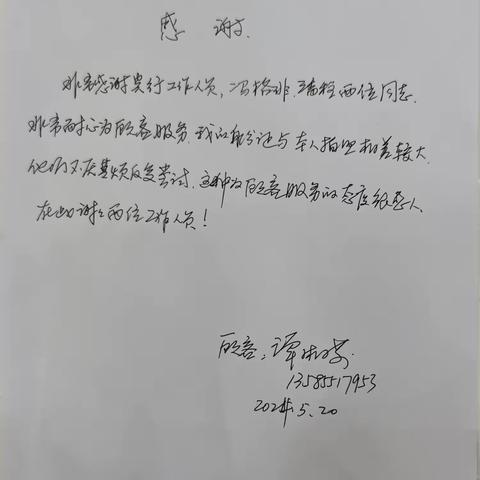 感 谢
非常感谢贵行工作人员,冯格非、潘莊两位同志.
非常耐心为顾客服务.我的身份证与本人拍照相差较大.
他们不厌其烦反复尝试.这种为顾客服务的态度很感人.
在此谢谢两位工作人员!
顾客:谭
13585517953
5.20